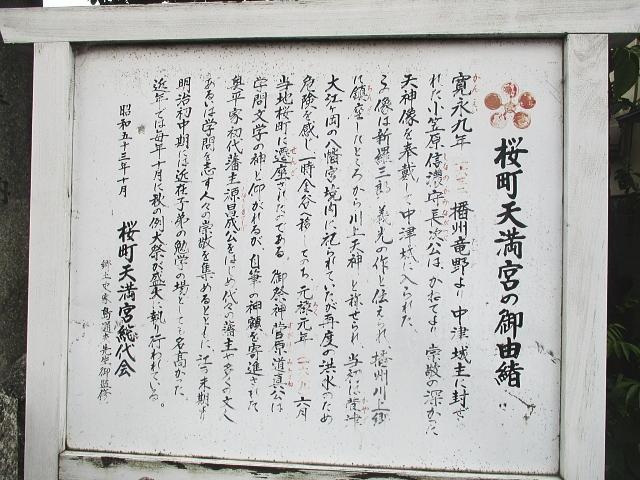 桜町天満宮の御由緒
寛永九年 播州竜野より 中津城主に封ぜら
れた小笠原信濃守長次公は、かねてより 崇敬の深かった
天神像を奉戴して中津城に入られた。
この像は新羅三郎義光の作と伝えられ 播州川上郷
に鎮座したところから川上天神と称せられ 当初は
大江ヶ岡の八幡宮境内に祀られていたが再度の洪水のため
危険を感じ一時金谷へ移してのち、元禄元年 六月
当地桜町に遷座されたのである。御祭神菅原道真公は
学問文学の神と仰がれるが、自筆の神額を寄進された
奥平家初代藩主源昌成公をはじめ代々の藩主や多くの文人
あるいは学問を志す人々の崇敬を集めるとともに、江戸末期より
明治初中期には近在子弟の勉学の場としても名高かった
近年では毎年十月に秋の例大祭が盛大に執り行われている。
昭和五十三年十月
桜町天満宮総代会
郷土史家 先生御監修